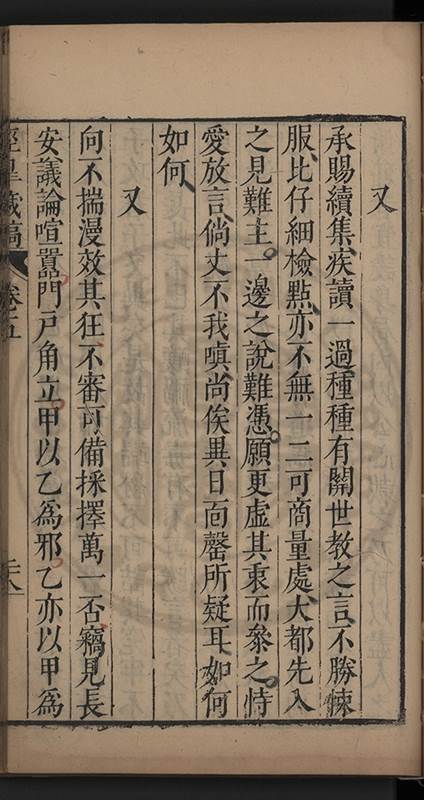 又
承賜續集疾讀一過種種有關世教之言不勝悚
服比仔細檢點亦不無一二可商量處大都先入
之見難主一邊之說難憑願更虛其衷而叅之恃
愛放言倘丈不我嗔尚俟異日面罄所疑耳如何
如何
又
向不揣漫效其狂不審可備採擇萬一否竊見長
安議論喧囂門戶角立甲以乙為邪乙亦以甲為
涇臯藏稿
卷之五
二八